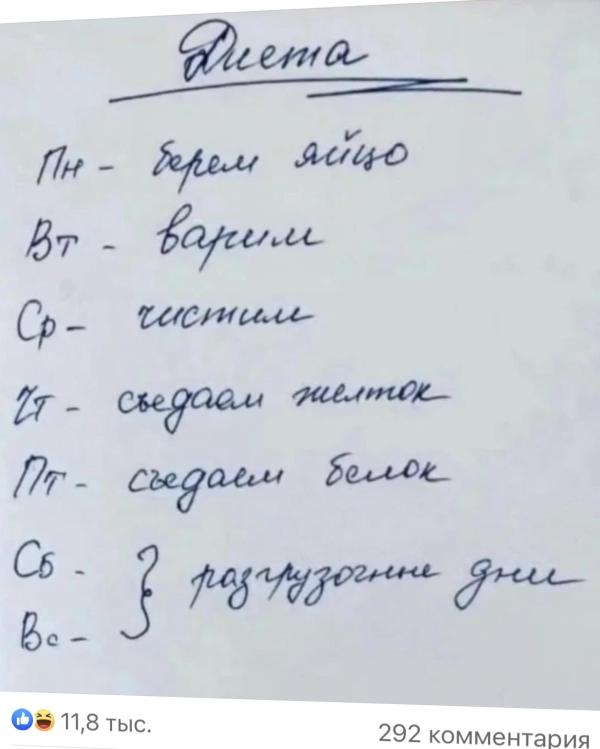 Диета
Пн - берем яйцо
Вт - варим
Ср - чистим
Чт - съедаем желток
Пт - съедаем белок
Сб -
Вс -
} разгрузочные дни
11,8 тыс.
292 комментария